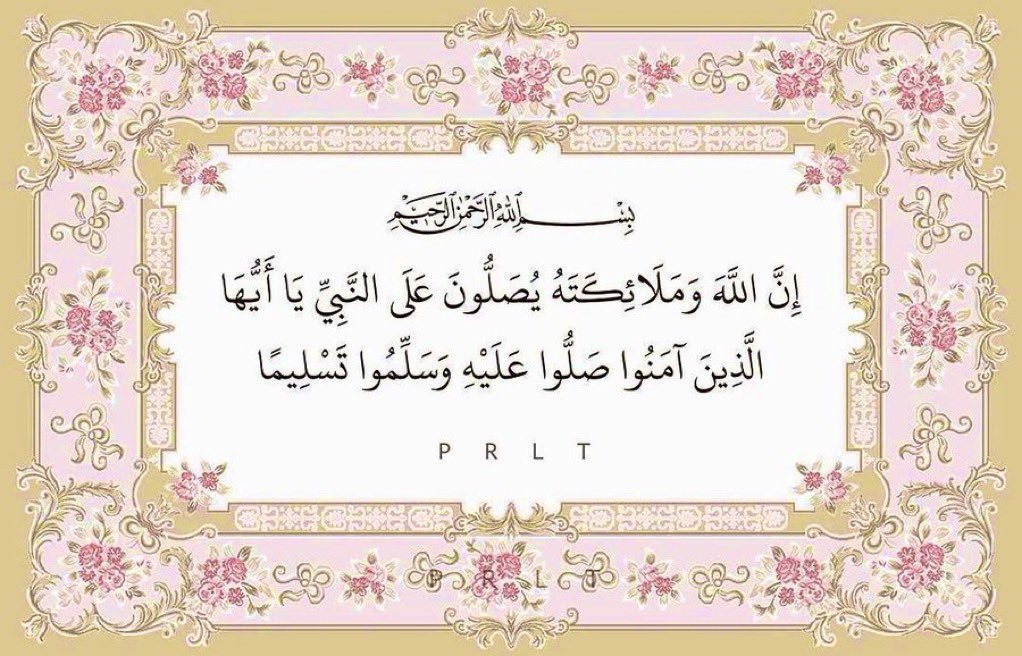 بِسْمِ اللَّهِ الرَّحْمَٰنِ الرَّحِيمِ
إِنَّ اللَّهَ وَمَلَائِكَتَهُ يُصَلُّونَ عَلَى النَّبِيِّ يَا أَيُّهَا
الَّذِينَ آمَنُوا صَلُّوا عَلَيْهِ وَسَلِّمُوا تَسْلِيمًا
P R L T
P R L T